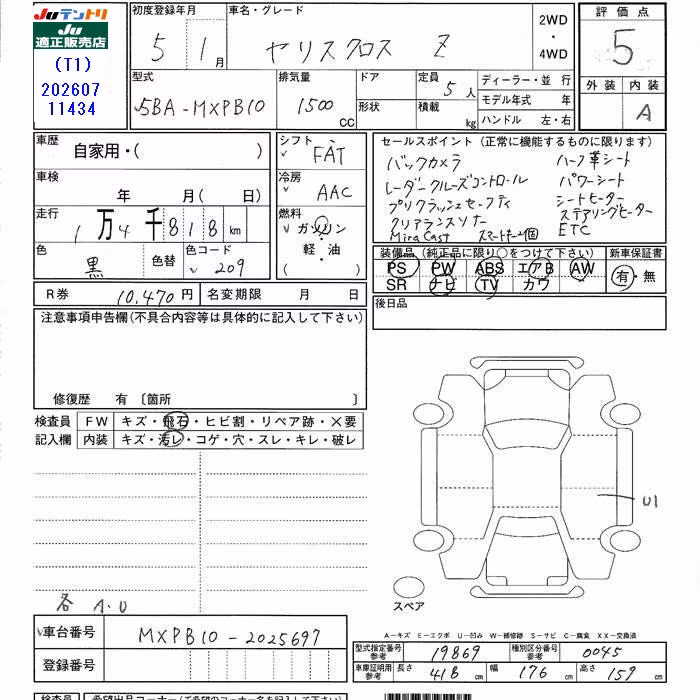 JUテントリ
JU
適正販売店
(T1)
202607
11434
初度登録年月
5 1月
車名・グレード
ヤリスクロス Z
2WD
・
4WD
評価点
5
外装 内装
A
型式
5BA-MXPB10
排気量
1500
CC
ドア
形状
定員
5人
積載
kg
ディーラー・並行
モデル年式 年
ハンドル 左・右
車歴
自家用・( )
車検
年 月( 日)
走行
1万4千818km
色
黒
色替
色コード
209
シフト
FAT
冷房
AAC
燃料
ガソリン
・
軽・油
( )
セールスポイント (正常に機能するものに限ります)
バックカメラ ハーフ革シート
レーダークルーズコントロール パワーシート
プリクラッシュセーフティ シートヒーター
クリアランスソナー ステアリングヒーター
Mira Cast スマートキー2個 ETC
装備品 (純正品に限り○をつけて下さい)
PS PW ABS エアB AW
SR ナビ TV カワ
新車保証書
有・無
後日品
R券 10,470円
名変期限 月 日
注意事項申告欄(不具合内容等は具体的に記入して下さい)
修復歴 有 〔箇所 〕
検査員
記入欄
FW キズ・飛石・ヒビ割・リペア跡・X要
内装 キズ・汚レ・コゲ・穴・スレ・キレ・破レ
U1
スペア
各 A.U
A-キズ E-エクボ U-凹み W-補修跡 S-サビ C-腐食 XX-交換済
車台番号 MXPB10-2025697
登録番号
型式指定番号
参考
19869
種別区分番号
参考
0045
車庫証明用
参考
長さ 418cm 幅 176cm 高さ 159cm
検査員 希望出品コーナー(ご希望のコーナー名を記入して下さい)